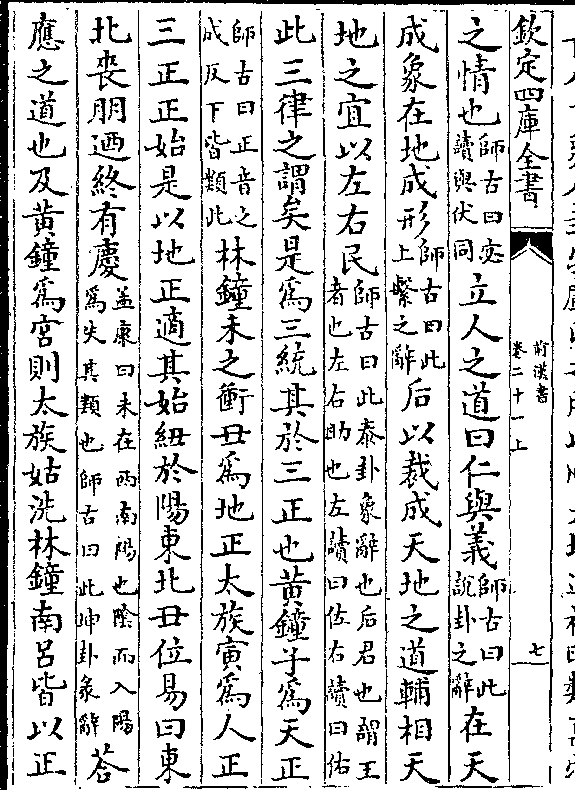 欽定四庫全書
前漢書
卷二十一上
七
之情也師古曰宓讀與伏同立人之道曰仁與義師古曰此說卦之辭在天
成象在地成形師古曰此上繫之辭后以裁成天地之道輔相天
地之宜以左右民師古曰此泰卦象辭也后君也謂王者也左右助也左讀曰佐右讀曰佑
此三律之謂矣是爲三統其於三正也黃鐘子爲天正
師古曰正音之成反下皆類此林鐘未之衝丑爲地正太族寅爲人正
三正正始是以地正適其始紐於陽東北丑位易曰東
北喪朋迺終有慶孟康曰未在西南陽也陰而入陽爲失其類也師古曰此坤卦彖辭荅
應之道也及黃鐘爲宮則太族姑洗林鐘南呂皆以正